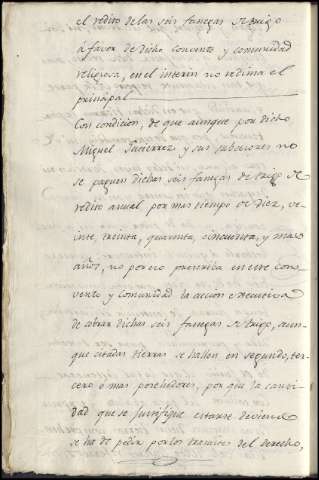 el redito de las seis fanegas de trigo
à favor de dicho convento y comunidad
religiosa, en el interin no redima el
principal
Con condicion, de que aunque por dicho
Miguel Gutierrez y sus subcesores no
se paguen dichas seis fanegas de trigo de
redito anual por mas tiempo de diez, ve-
inte, treinta, quarenta, cincuenta, y mas
años, no por eso prescriba en este con-
vento y comunidad la accion executiva
de cobrar dichas seis fanegas de trigo, aun-
que citadas tierras se hallen en segundo, ter-
cero ò mas posehedores, por que la canti-
dad que se justifique estarse deviendo
se ha de pedir por los tramites del derecho,